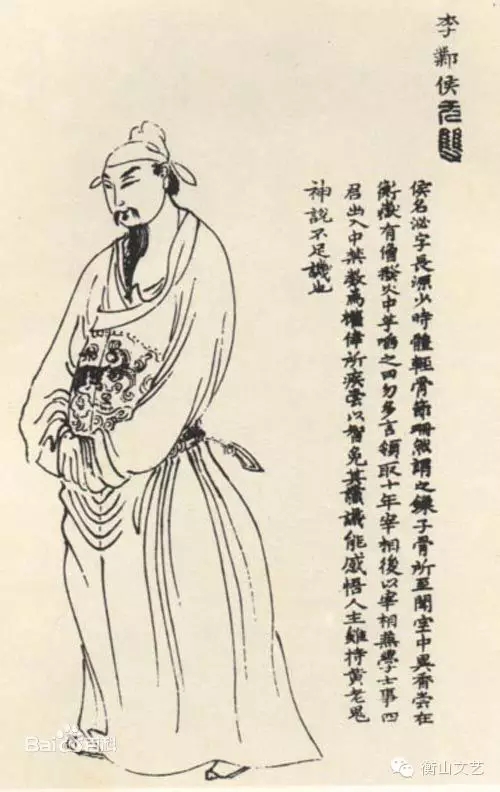 李鄴侯无雙
侯名泌字長源少時體輕骨節珊然謂之鎖子骨所至聞室中異香嘗在
衡嶽有僧撥火中芋啗之曰勿多言領取十年宰相後以宰相兼學士事四
君出入中禁數為權倖所疾嘗以智免其讜議能感悟人主雖持黃老鬼
神說不足譏也
Bai百科
衡山文艺